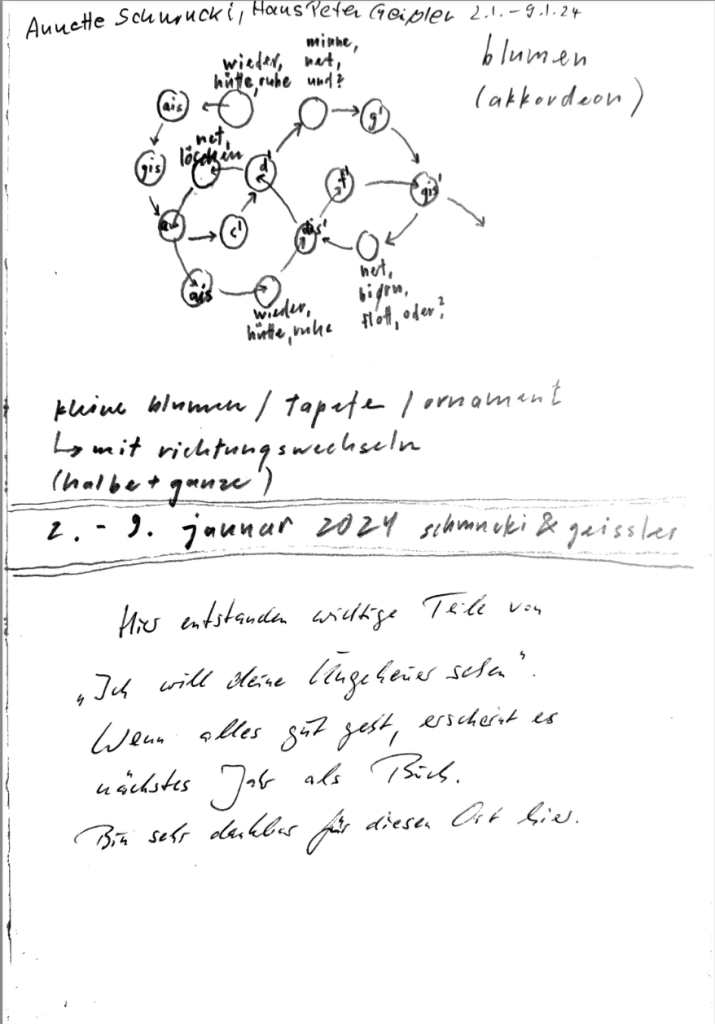 Annette Schmucki, Hans Peter Geißler 2.1.–9.1.24
blumen
(akkordeon)
minne,
net,
und?
wieder,
hütte, ruhe
ais
g'
net,
löschein
gis
d'
f'
gis'
a
c'
dis'
ais
wieder,
hütte, ruhe
net,
flott, oder?
kleine blumen / tapete / ornament
↳ mit richtungswechseln
(halbe + ganze)
2. – 9. januar 2024 schmucki & geissler
Hier entstanden wichtige Teile von
„Ich will deine Ungeheuer sehen“.
Wenn alles gut geht, erscheint es
nächstes Jahr als Buch.
Bin sehr dankbar für diesen Ort hier.